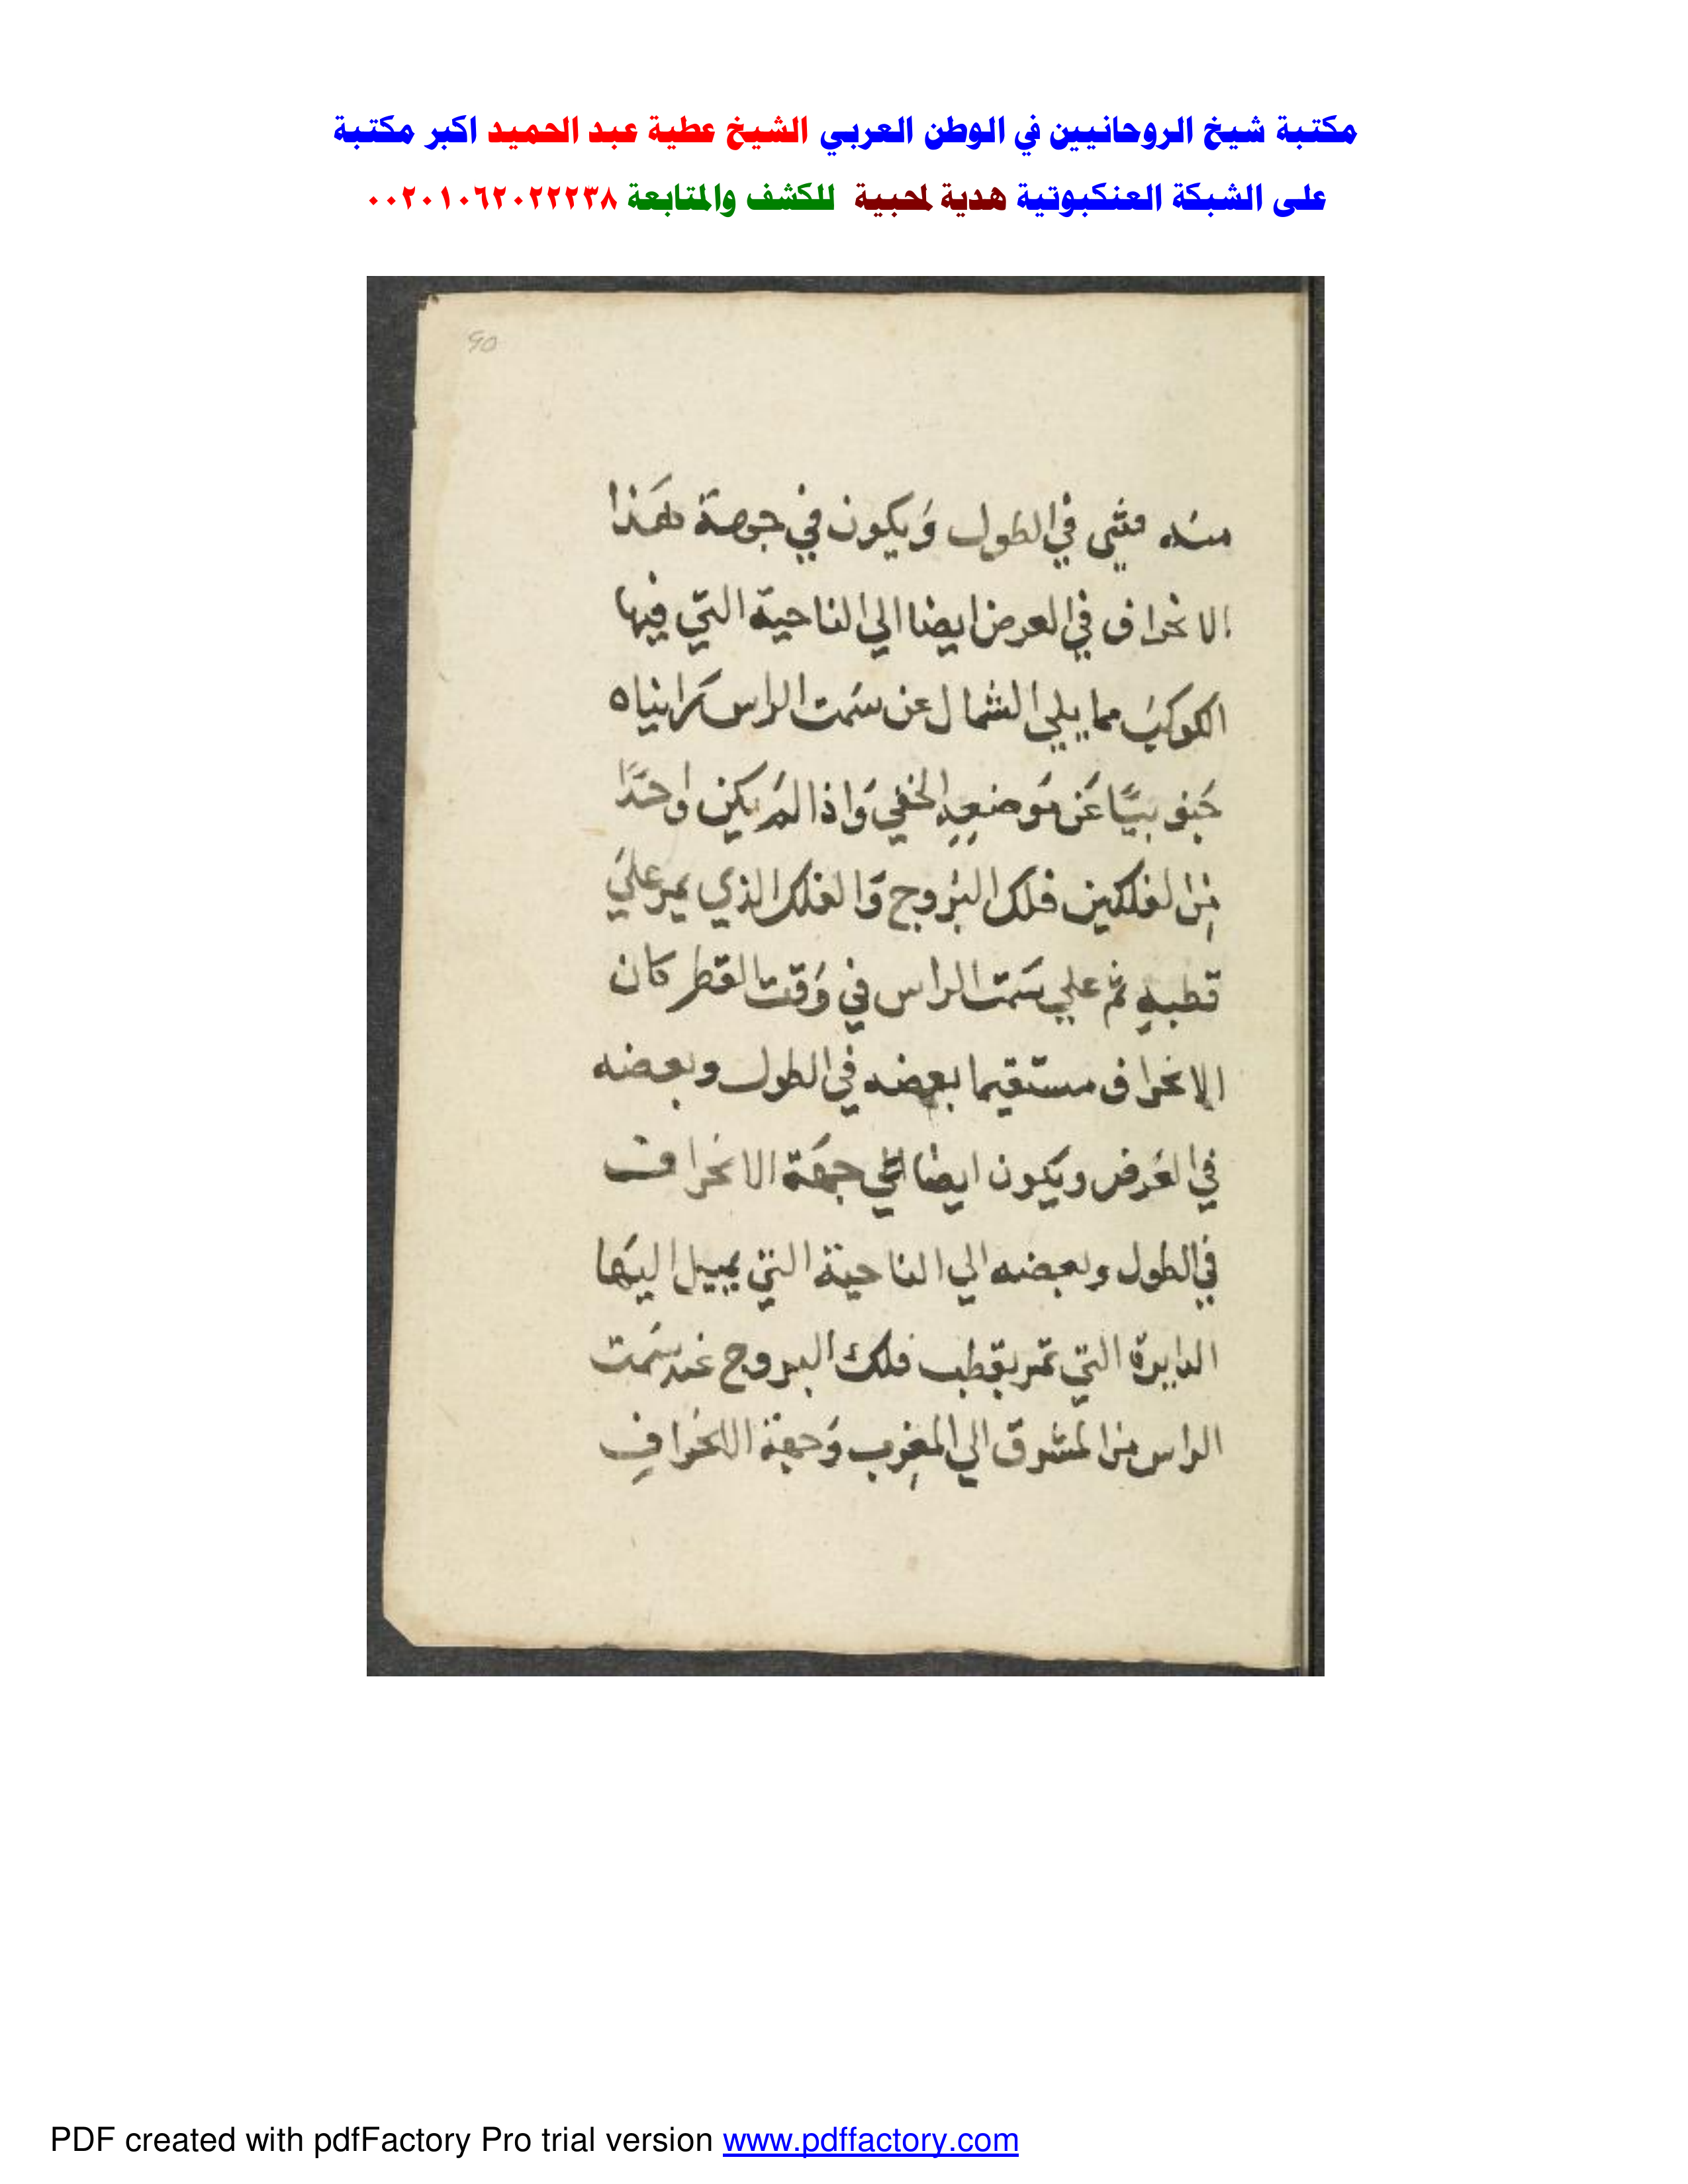 مكتبة شيخ الروحانيين في الوطن العربي الشيخ عطية عبد الحميد اكبر مكتبة
على الشبكة العنكبوتية هدية لمحبية للكشف والمتابعة ٠٠٢٠١٠٦٢٠٢٢٢٣٨
90
منه في الطول وَيكون في جهة هَذا
الانحراف في العرض ايضا الي الناحية التي فيها
الكوكبَ مما يلي الشمال عن سَمت الراس
جَنوبيًا عَن مَوضعِهِ الخفي وَاذا لمَ يكن واحَدًا
مِن الفلكين فلك البرُوج وَالفلك الذي يمر عليَ
قطبهِ ثم علي سَمت الراس في وَقت القطر كان
الانحراف مستقيما بعضه في الطول وبعضه
في العَرض ويكون ايضا الي جهَة الانحراف
في الطول وبعضه الي الناحية التي يميل اليهَا
الدايرة التي تمر بقطب فلك البروج عند سَمت
الراس من المشرق الي المغرِب وَجهة الانحرافِ
PDF created with pdfFactory Pro trial version www.pdffactory.com